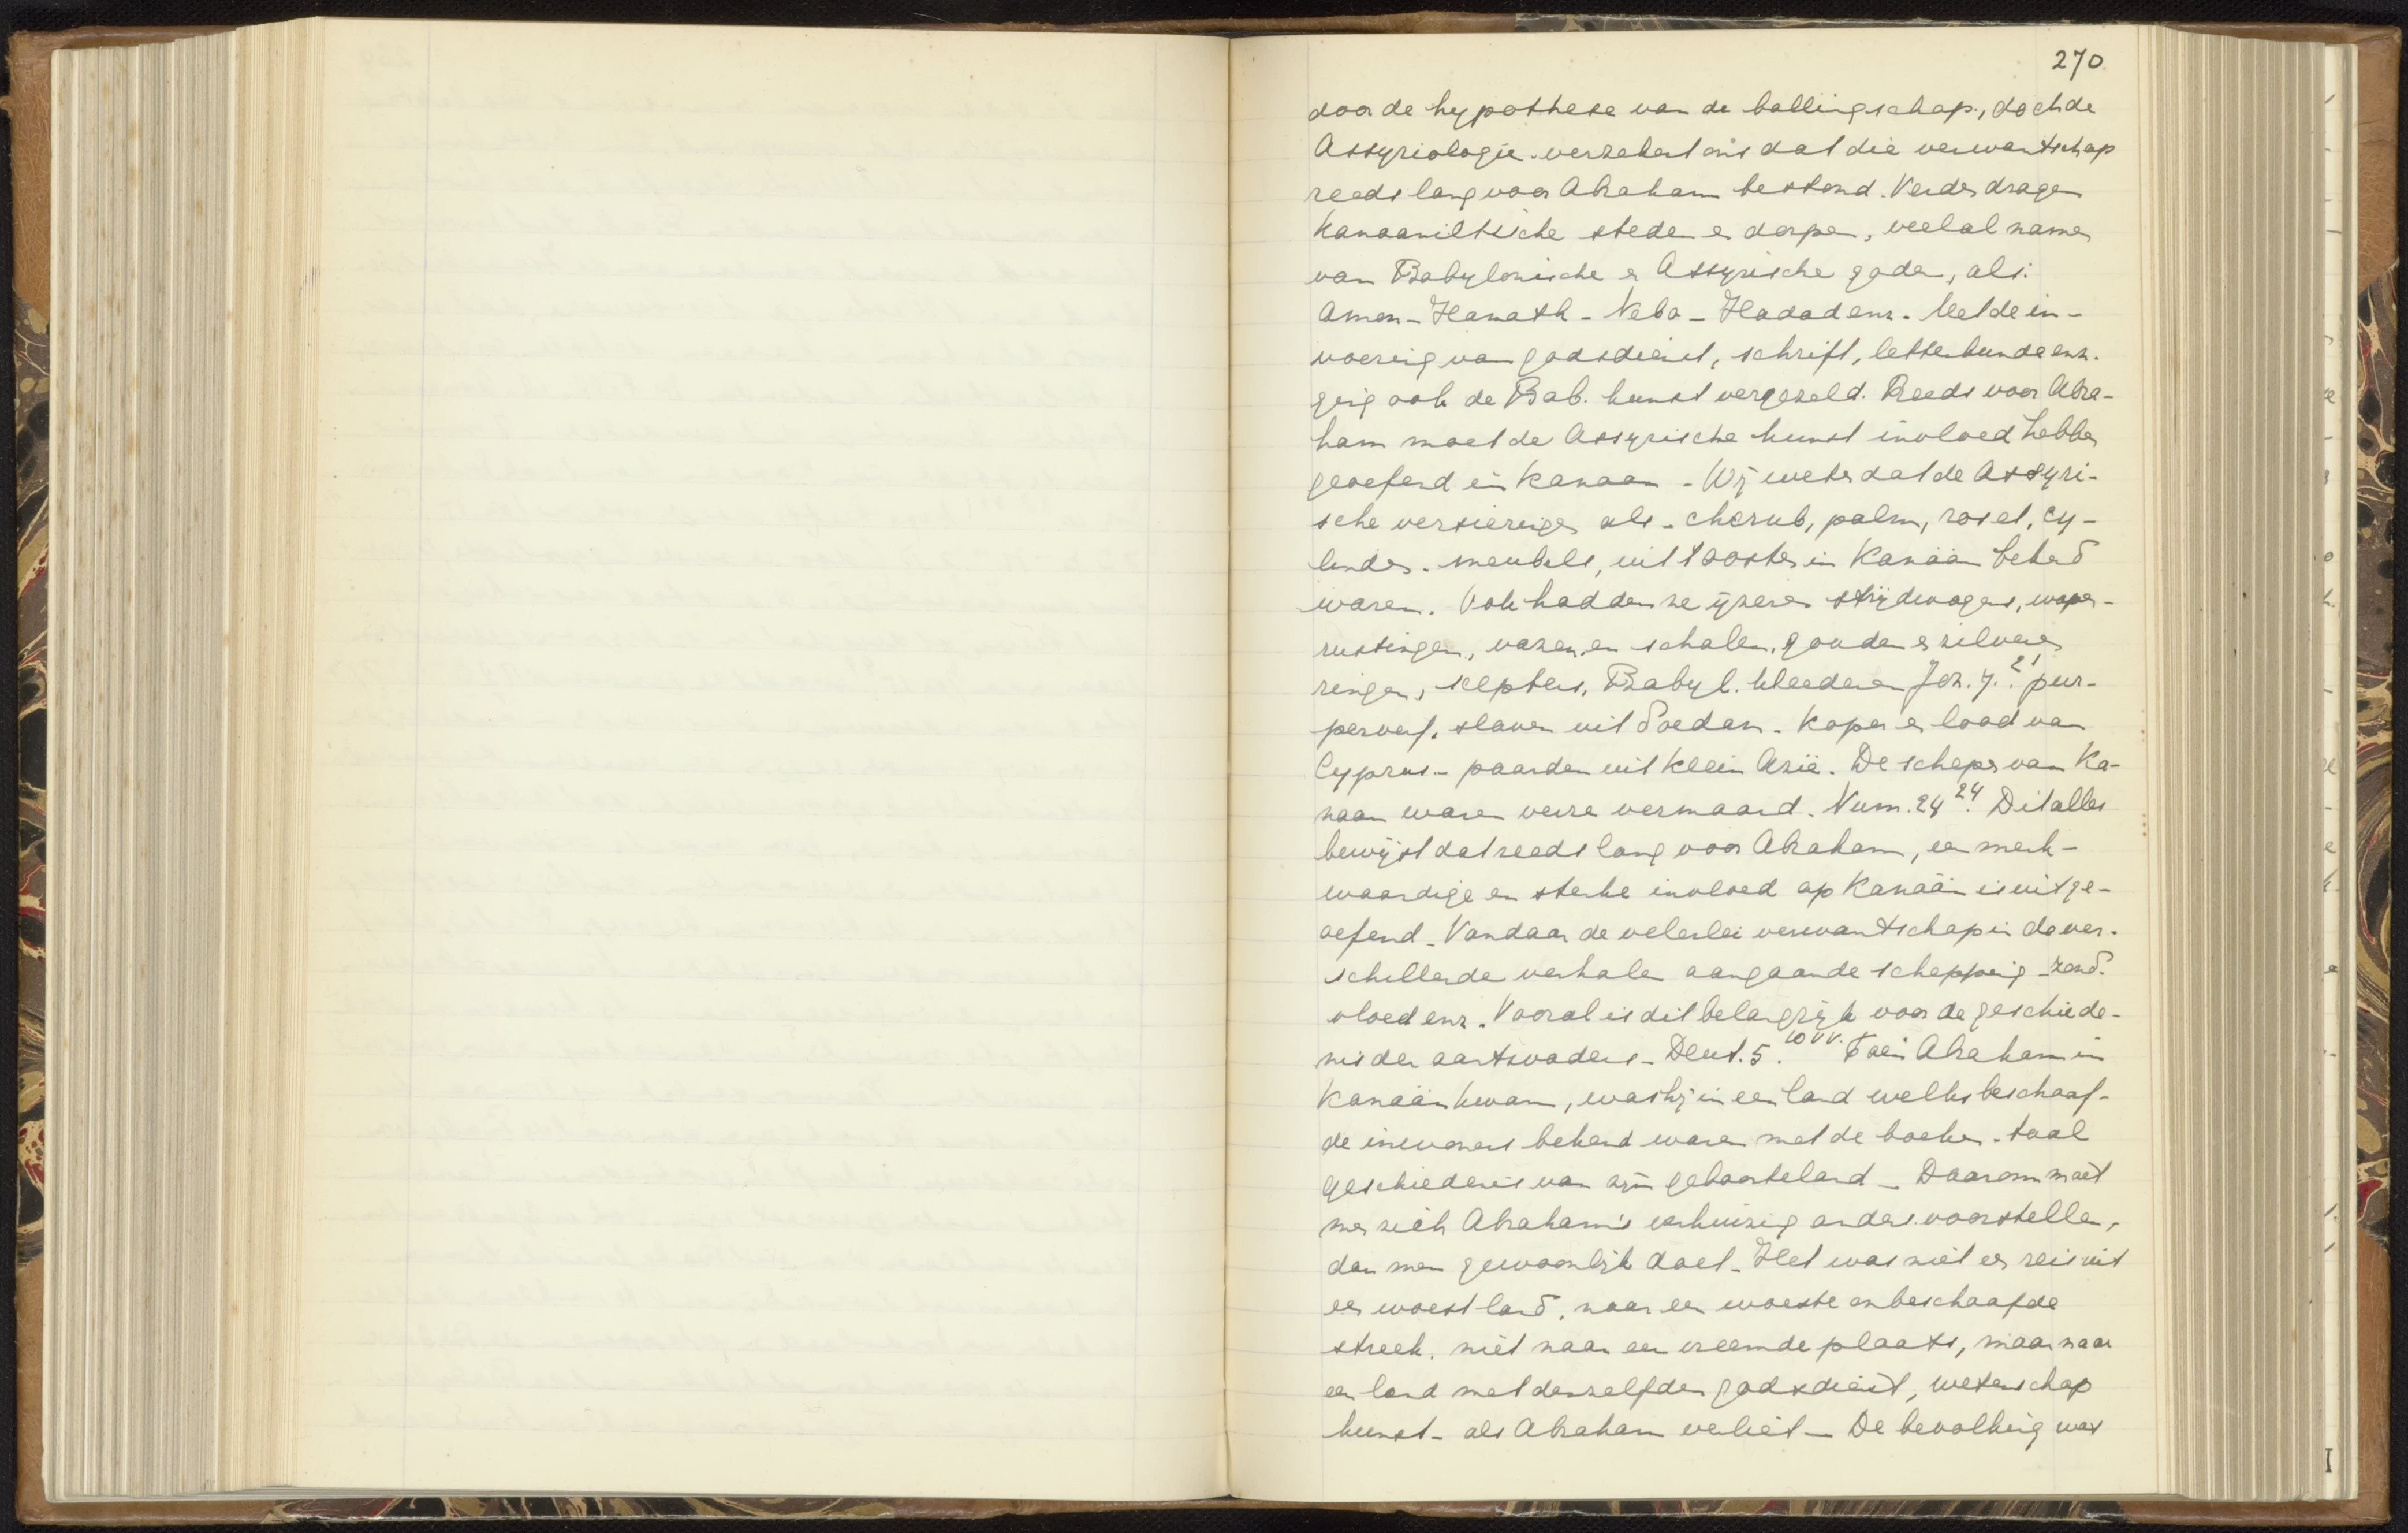 270
door de hypothese van de ballingschap, doch de
Assyriologie verzekert ons dat die verwantschap
reeds lang voor Abraham bestond. Verder dragen
Kanaanitische steden en dorpen, veelal namen
van Babylonische en Assyrische goden, als:
Amon - Hanath - Nebo - Hadad enz. Met de in-
voering van godsdienst, schrift, letterkunde enz.
ging ook de Bab. kunst vergezeld. Reeds voor Abra-
ham moet de Assyrische kunst invloed hebben
geoefend in Kanaan - Wij weten dat de Assyri-
sche versieringen als - cherub, palm, roset, cy-
linder - meubels, uit 't oosten in Kanaän bekend
waren. Ook hadden ze ijzeren strijdwagens, wapen-
rustingen, vazen, en schalen, gouden en zilveren
ringen, scepters, Babyl. kleederen Joz. 7.21 pur-
perverf, slaven uit Soedan - Koper en lood van
Cyprus - paarden uit Klein Azië. De schepen van Ka-
naan waren verre vermaard. Num. 24 24. Dit alles
bewijst dat reeds lang voor Abraham, een merk-
waardige en sterke invloed op Kanaän is uitge-
oefend - Vandaar de velerlei verwantschap in de ver-
schillende verhalen aangaande schepping - zond-
vloed enz. Vooral is dit belangrijk voor de geschiede-
nis der aartsvaders - Deut. 5. 10 vv. Toen Abraham in
Kanaän kwam, was hij in een land welks beschaaf-
de inwoners bekend waren met de boeken - taal
geschiedenis van zijn geboorteland - Daarom moet
men zich Abraham's verhuizing anders voorstellen,
dan men gewoonlijk doet - Het was niet een reis uit
een woest land, naar een woeste onbeschaafde
streek, niet naar een vreemde plaats, maar naar
een land met denzelfden godsdienst, wetenschap
kunst - als Abraham verliet - De bevolking was